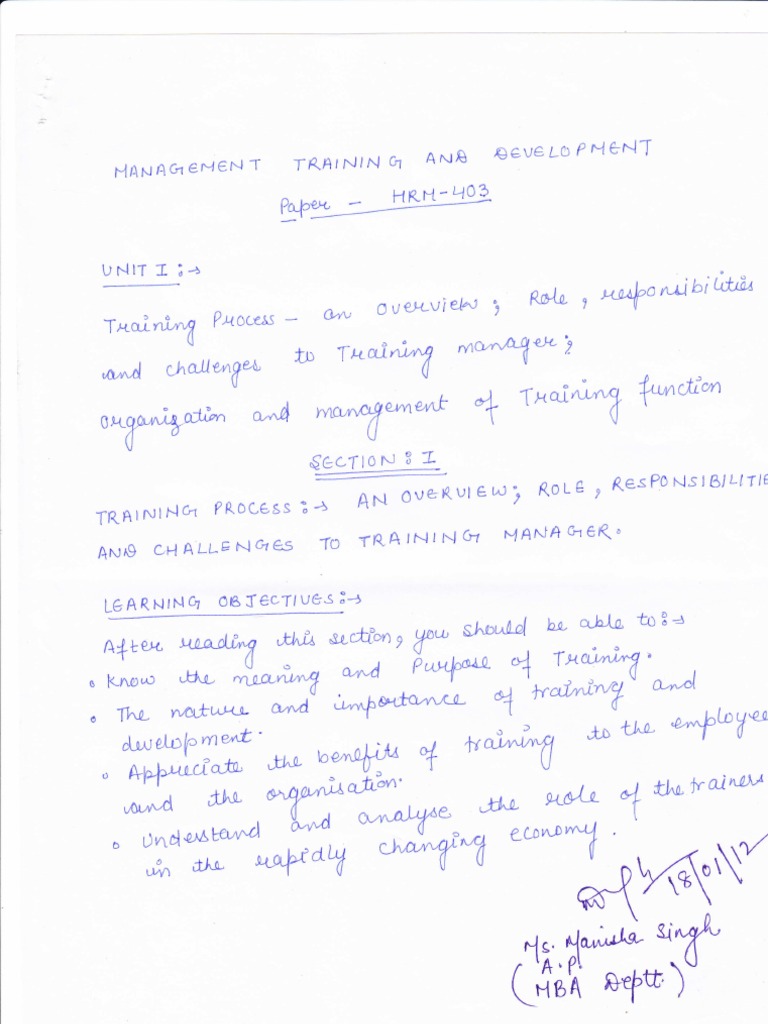 MANAGEMENT TRAINING AND DEVELOPMENT
Paper - HRM-403
UNIT I :→
Training Process - an overview; Role, responsibilities
and challenges to Training manager;
organization and management of Training function
SECTION: I
TRAINING PROCESS :→ AN OVERVIEW; ROLE, RESPONSIBILITIE
AND CHALLENGES TO TRAINING MANAGER.
LEARNING OBJECTIVES :→
After reading this section, you should be able to :→
• Know the meaning and Purpose of Training.
• The nature and importance of training and
development.
• Appreciate the benefits of training to the employee
and the organisation.
• Understand and analyse the role of the trainers
in the rapidly changing economy.
18/01/12
Ms. Manisha Singh
(A.P.
MBA Deptt.)